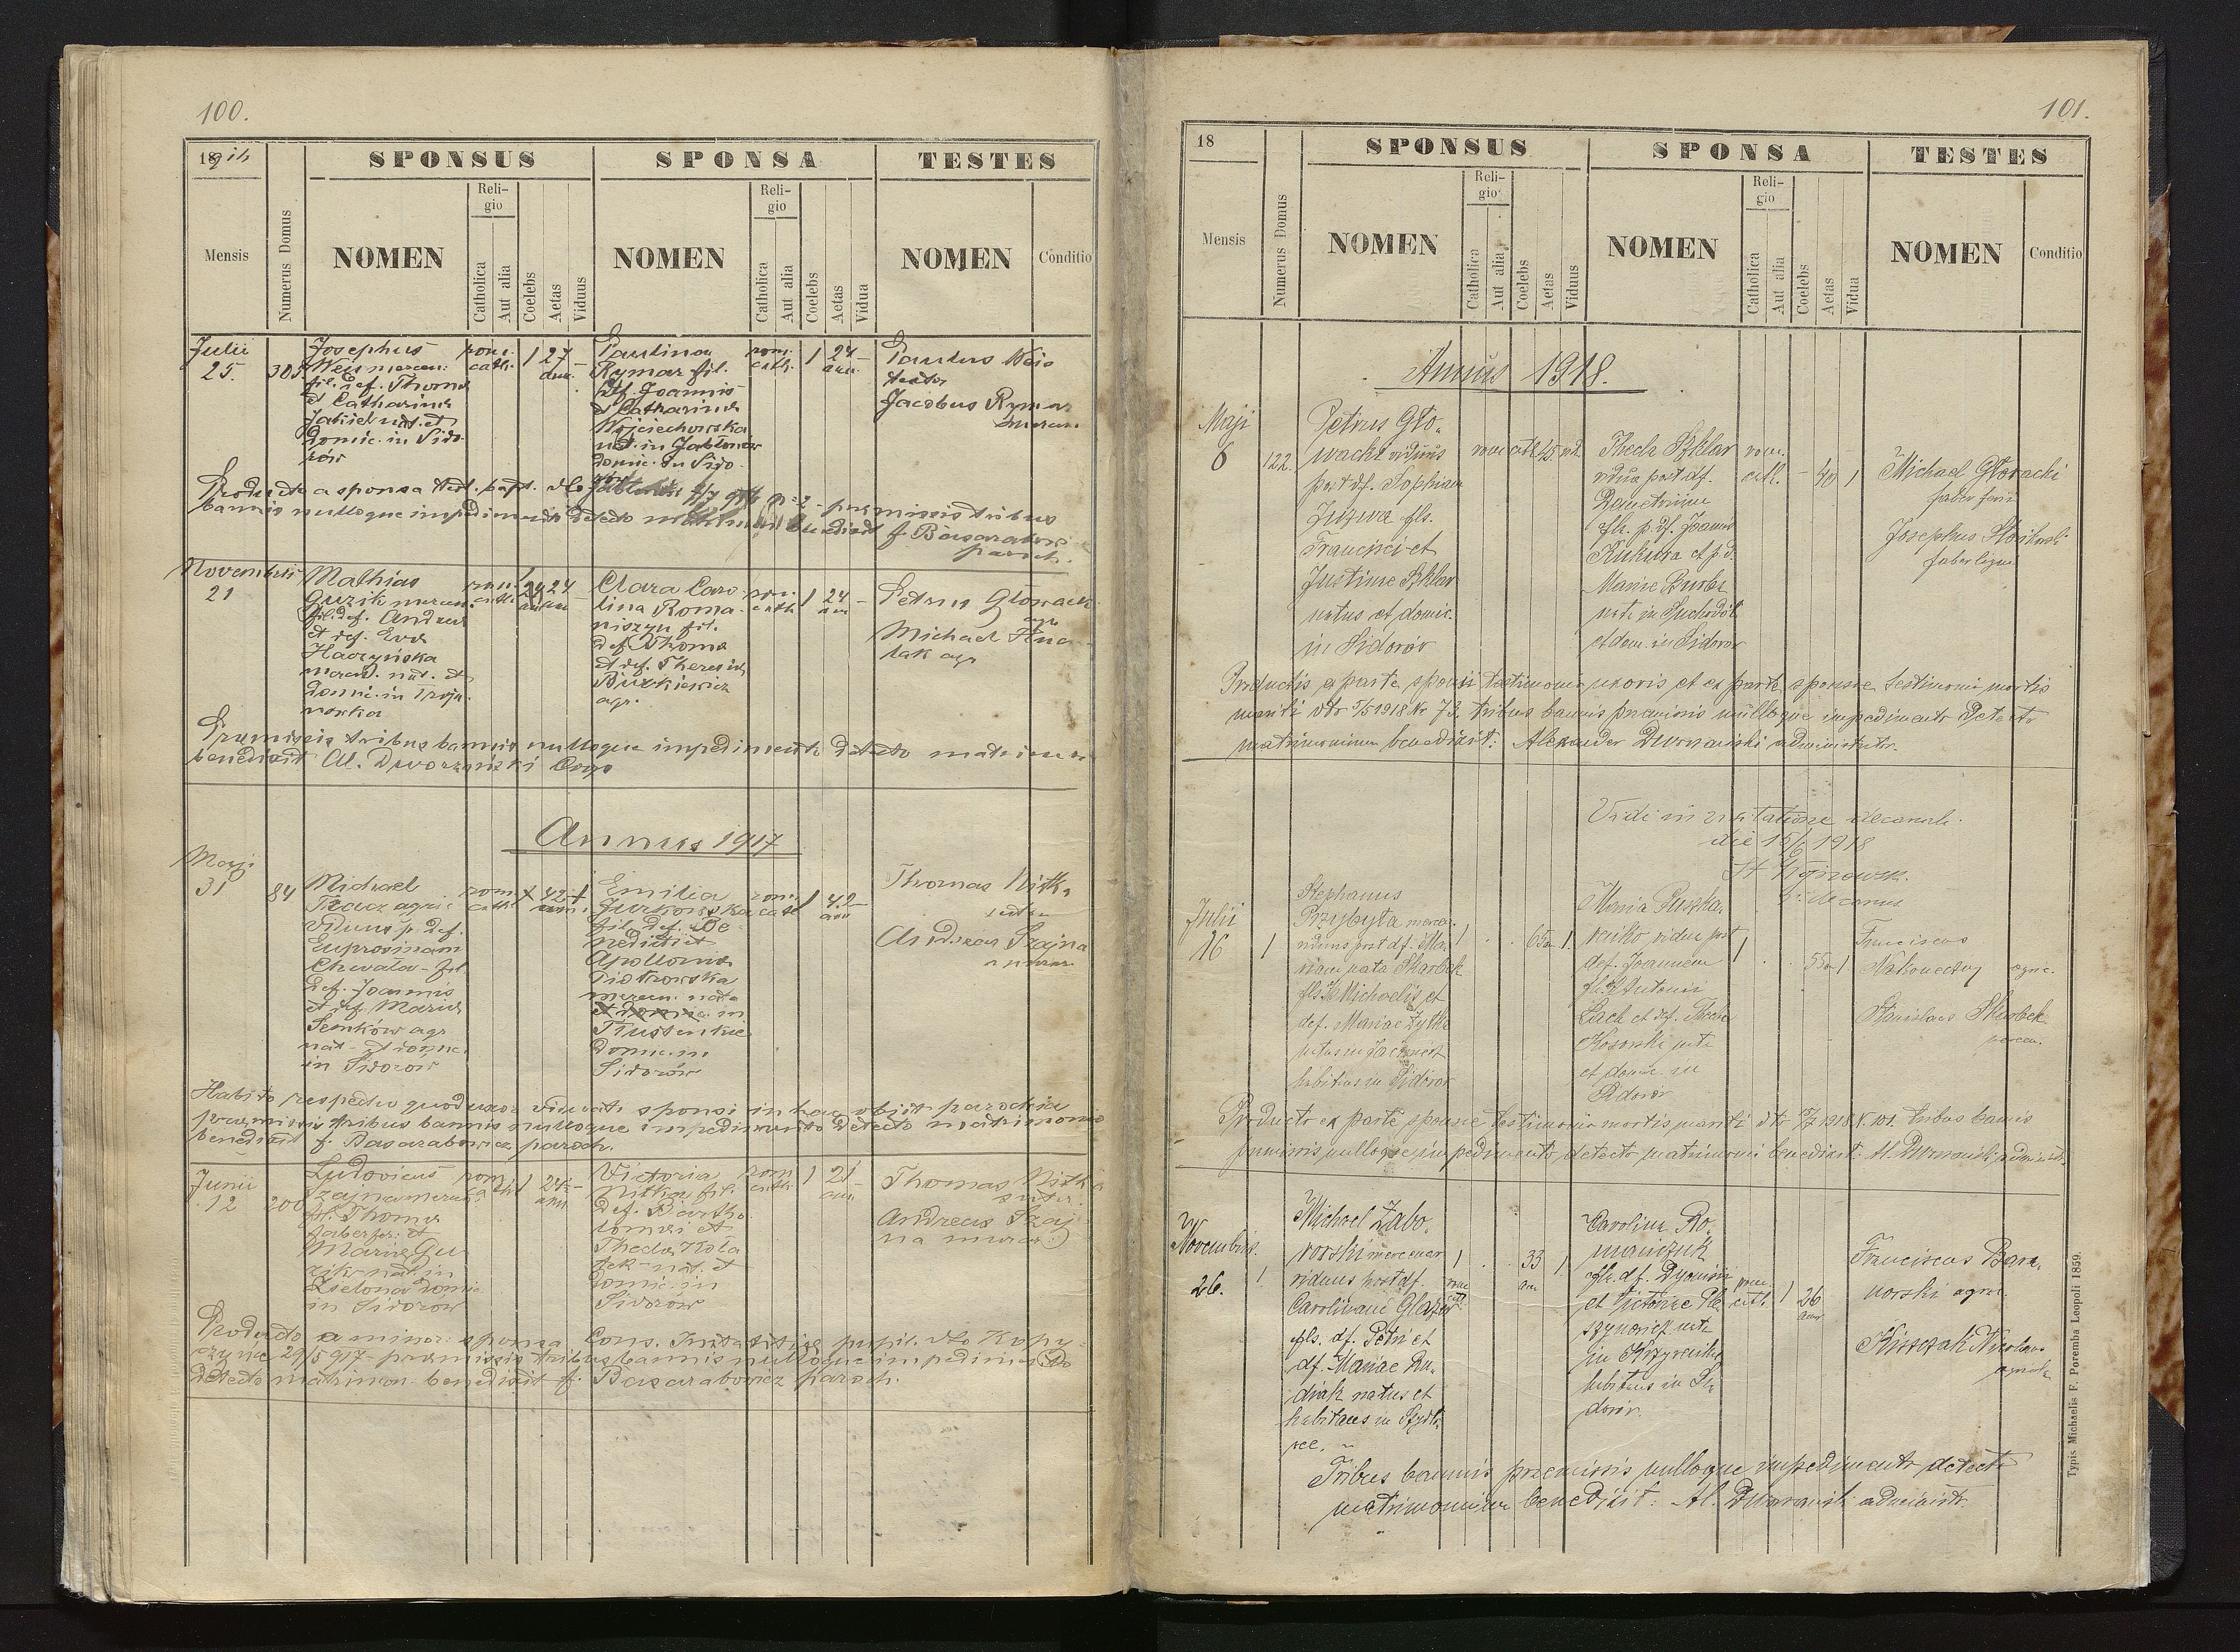 100.
18 916
SPONSUS
SPONSA
TESTES
Mensis
Numerus Domus
NOMEN
Religio
Catholica
Aut alia
Coelebs
Aetas
Viduus
NOMEN
Religio
Catholica
Aut alia
Coelebs
Aetas
Vidua
NOMEN
Conditio
Julii
25.
305
Josephus
Weis mercen:
fil. def. Thomae
et Catharinae
nat. et
domic. in Sido-
rów
rom.
cath.
1
27
ann.
Paulina
Rymar fil.
Joannis
et Catharinae
Wojciechowska
nat. in Jabłonów
domic. in Sido-
rom.
cath.
1
24
ann.
Paulus Weis
Jacobus Rymar
Producto a sponsa test. bapt. dto praemissis tribus
bannis nulloque impedimento detecto benedixit f. Basarabowicz
paroch.
Novembris
21
Mathias
Guzik mercen.
fil. def. Andreae
et def. Eva
Haczyńska
mercen. nat. et
domic. in Troja-
nowka
rom.
cath.
24
ann
Clara Caro-
lina Roma-
niszyn fil.
def. Thomae
et def. Theresiae
Burkiewicz
agr.
rom.
cath.
1
24
ann
Petrus Głowack
agr
Michael
agr
Praemissis tribus bannis nulloque impedimento detecto matrimon
benedixit Al. Dworzański Coop
Annus 1917
Maji
31
84
Michael
Tkacz agric.
viduus p. def.
Euprosinam
Chwała - fil.
def. Joannis
et def. Mariae
Semków agr
nat - et domic.
in Sidorów
rom.
cath.
42
Emilia
Jurkowska
fil. def. Be-
nedicti et
Apolloniae
Piotrowska
mercen. nata
et domic. in
Tłustenkie
domic. in
Sidorów
rom.
cath
1
42
ann
Thomas Nitka
sutor
Andreas Szajna
murar
Habito respectu quod uxor viduati sponsi in hac obiit parochia
praemissis tribus bannis nulloque impedimento detecto matrimonio
benedixit f. Basarabowicz paroch.
Junii
12
200
Ludovicus
Szajna mercen.
fil. Thomae
faber fer. et
Mariae Gu-
zik - nat. in
Zielona domic
in Sidorów
rom.
cath.
1
24
ann
Victoria
Nitka fil.
def. Bartho-
lomaei et
Theclae Koła-
dek - nat. et
domic. in
Sidorów
rom.
cath.
1
21
ann
Thomas Nitka
sutor
Andreas Szaj-
na murar
Producto a minor. sponsa Cons. pupil. dto Kopy-
czyńce 29/5 917 - praemissis tribus bannis nulloque impedimento
detecto matrimon. benedixit f. Basarabowicz paroch.
101.
18
SPONSUS
SPONSA
TESTES
Mensis
Numerus Domus
NOMEN
Religio
Catholica
Aut alia
Coelebs
Aetas
Viduus
NOMEN
Religio
Catholica
Aut alia
Coelebs
Aetas
Vidua
NOMEN
Conditio
Annus 1918.
Maji
6
122.
Petrus Gło-
wacki viduus
post df. Sophiam
fls.
Francisci et
Justine Szklar
natus et domic.
in Sidorów
rom cath 45 vid.
Thecla Szklar
vidua post df.
Demetrium
fla. p. df. Joannis
Kukurza et p. d.
Mariae
nata in Suchodół
et dom. in Sidorow
rom.
cath.
-
40
1
Michael Głowacki
faber ferri
Josephus
faber lign
Productis a parte sponsi testimonio uxoris et ex parte sponsae testimonio mortis
mariti dto 5/5 1918 Nr 73, tribus bannis praemissis nulloque impedimento detecto
matrimonium benedixit: Alexander Dworzański administrator.
Vidi in visitatione decanali
die 15/6 1918
Decanus
Julii
16
1
Stephanus
Przybyła mercen.
viduus post df. Ma-
riam nata Skarbek
fls. Michaelis et
def. Mariae Zytka
habitans in Sidorów
1
65
1.
Maria Puszka-
renko vidua post
def. Joannem
fla. Antonii
Lach et def. Theclae
Kosowska nata
et domic. in
Sidorów
1
55
1
Franciscus
Nakonechny
agric.
Stanislaus Skarbek
mercen.
Producto ex parte sponsae testimonio mortis mariti dto 1918 N. 101. tribus bannis
praemissis nulloque impedimento detecto matrimonium benedixit: Al. Dworzański administr.
Novembris
26.
1
Michael Zabo-
rowski mercenar
viduus post df.
Carolinam Głazow
fls. df. Petri et
df. Mariae Ru-
diak natus et
habitans in Szydło-
wce.
1
rom
cath
33
an
1
Carolina Ro-
maniczuk
fla. df. Dyonisii
et Victoriae Ple-
szyniewicz nata
in
habitans in Si-
dorów.
rom.
cath.
1
26
ann
Franciscus Bara-
nowski agric.
Kisseczak Nicolaus
agricola
Tribus bannis praemissis nulloque impedimento detecto
matrimonium benedixit: Al. Dworzański administr.
Typis Michaelis F. Poremba Leopoli 1859.